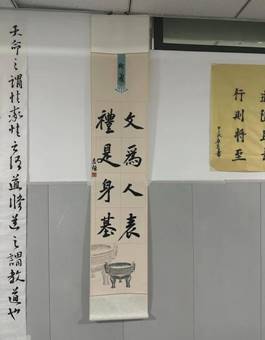 道阻且長
行則將至
文為人表
禮是身基
天命之謂性率性之謂道脩道之謂教道也